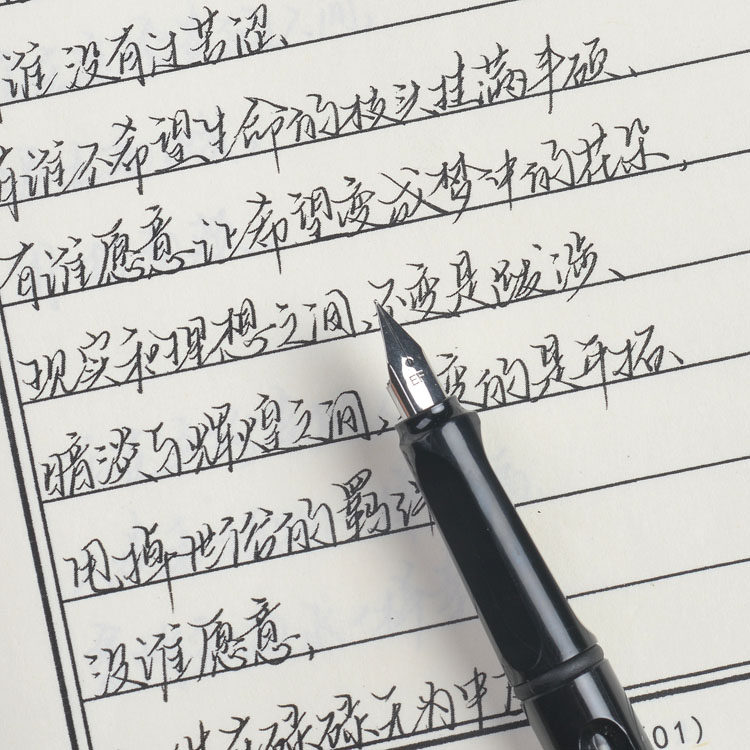 谁没有过苦涩、
有谁不希望生命的枝头挂满丰硕、
有谁愿意让希望变成梦中的花朵,
现实和理想之间,不变是跋涉、
暗淡与辉煌之间,变的是开拓、
甩掉世俗的羁
没谁愿意,
在碌碌无为中
01)